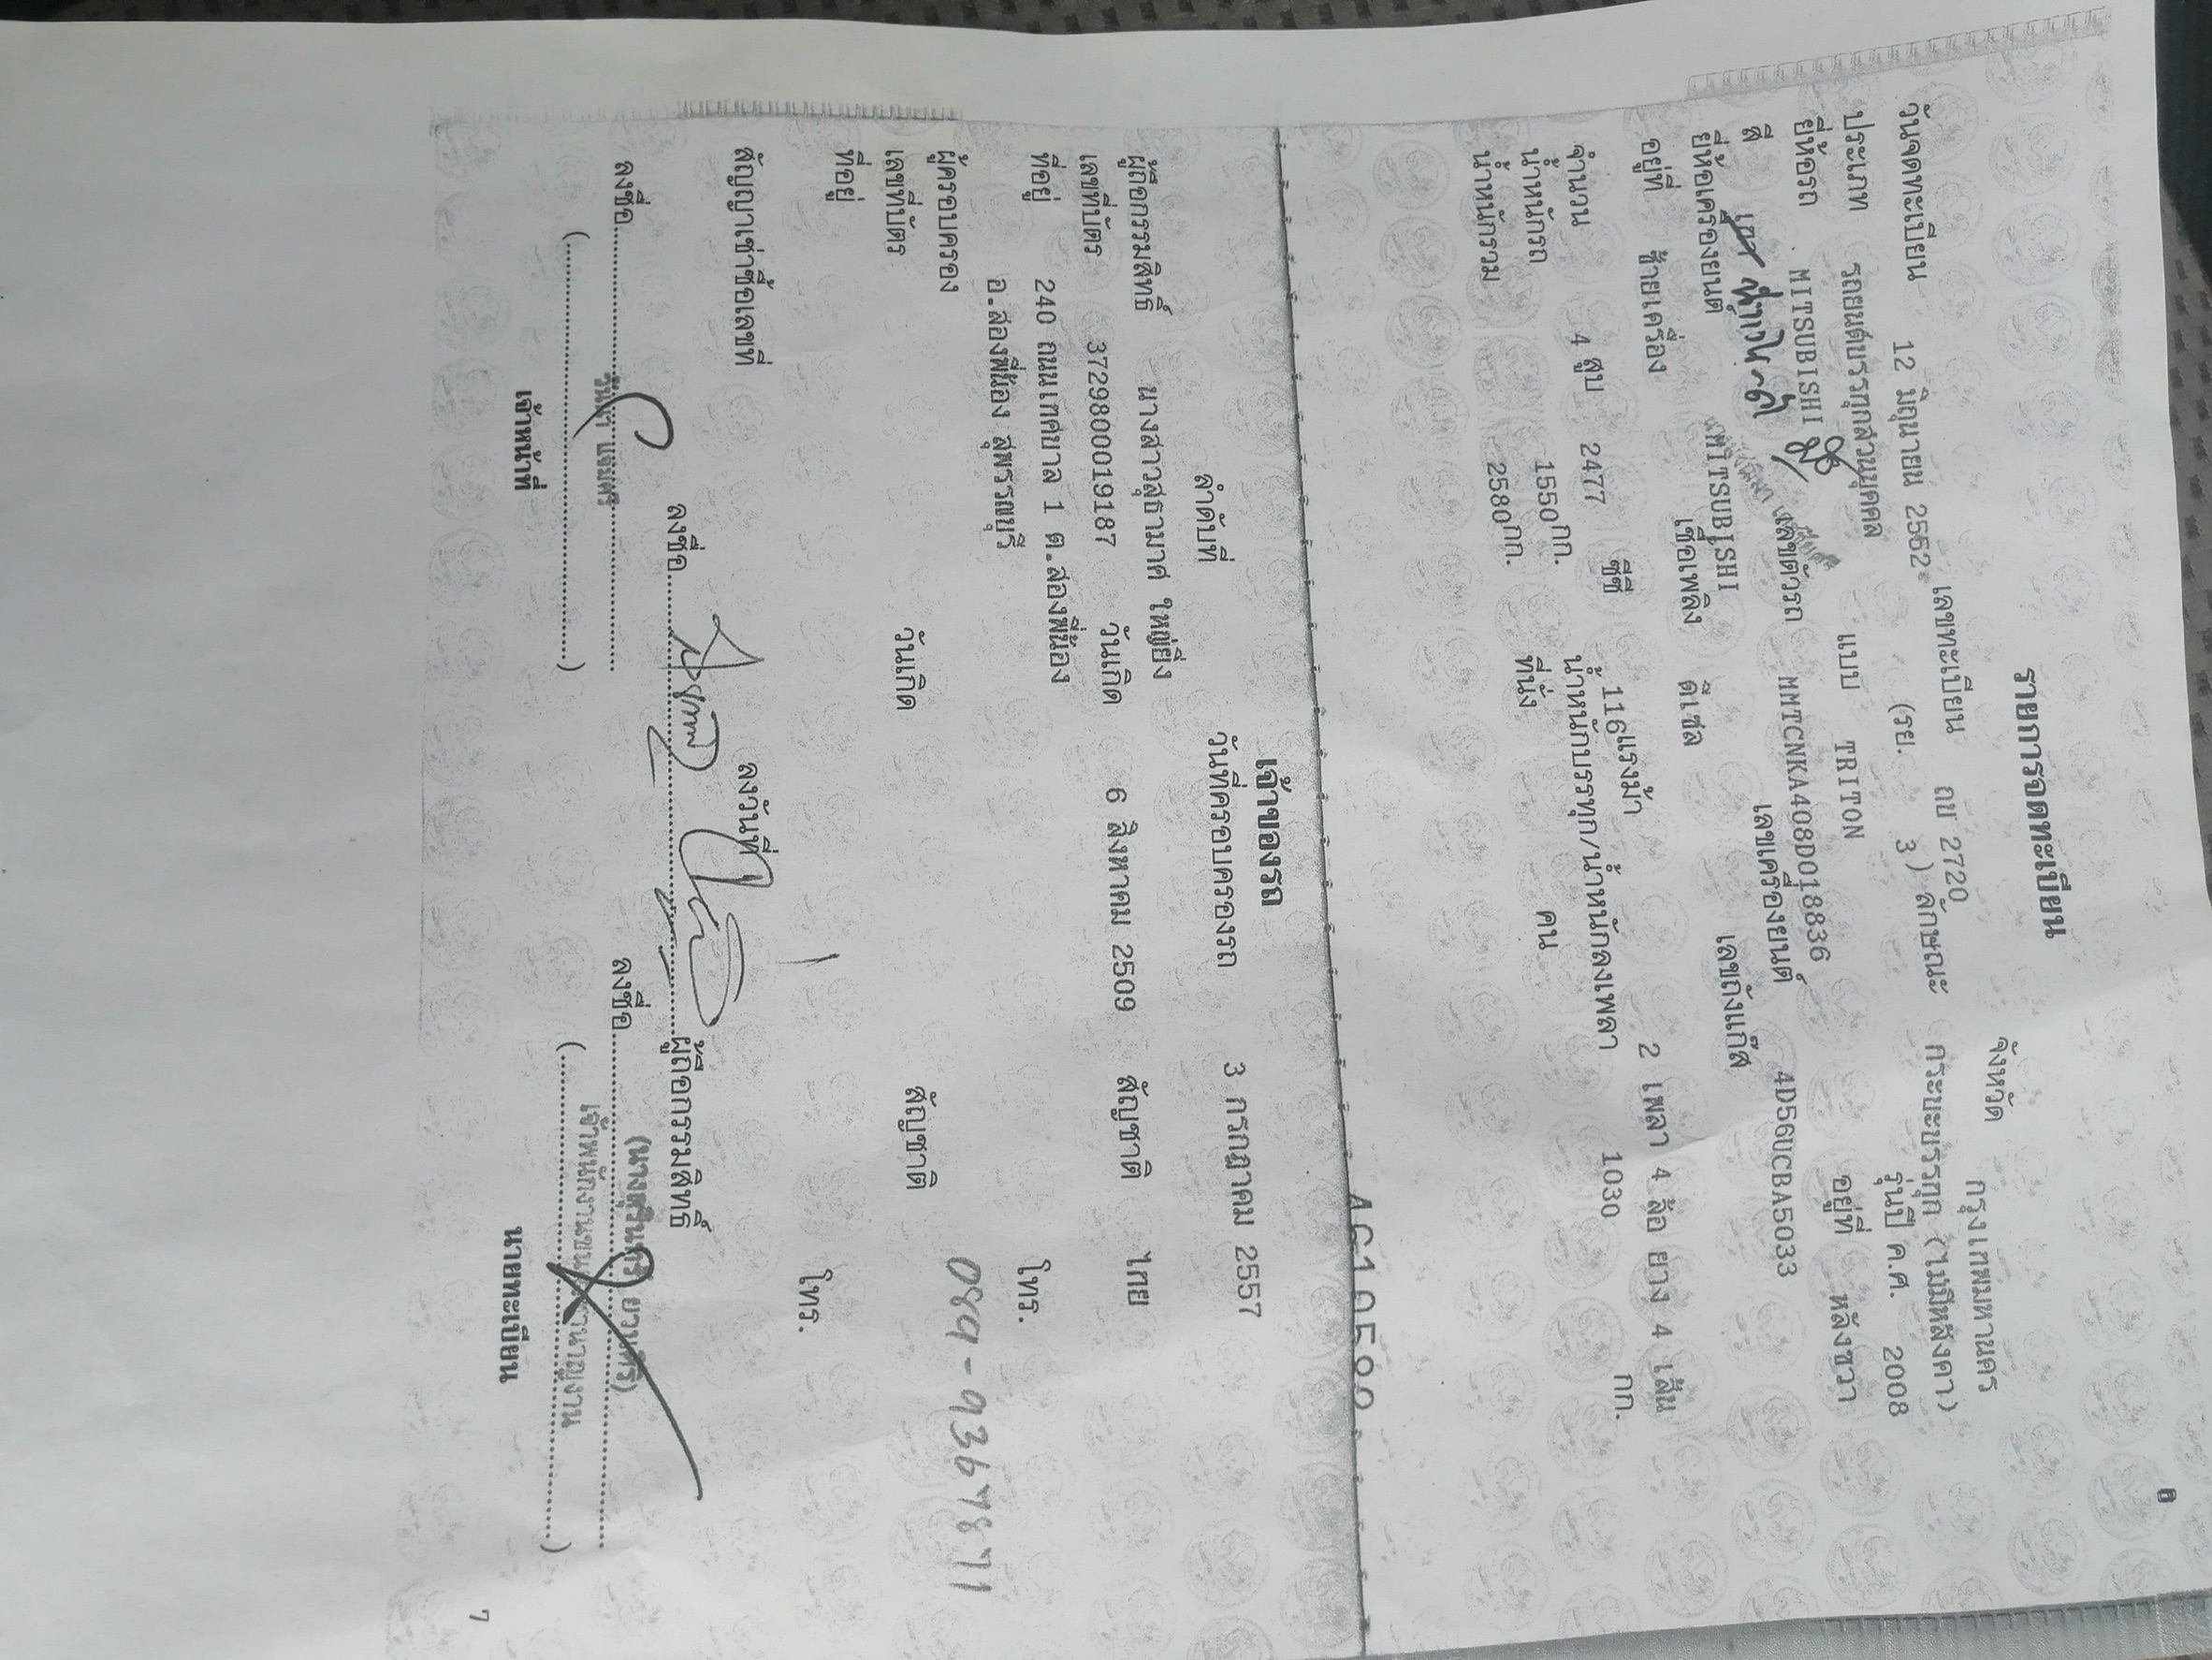 รายการจดทะเบียน
วันจดทะเบียน 12 มิถุนายน 2552 เลขทะเบียน ถข 2720 จังหวัด กรุงเทพมหานคร
ประเภท รถยนต์บรรทุกส่วนบุคคล (รย. 3 ) ลักษณะ กระบะบรรทุก (ไม่มีหลังคา)
ยี่ห้อรถ MITSUBISHI แบบ TRITON รุ่นปี ค.ศ. 2008
สี เลขตัวรถ MMTCNKA408D018836 อยู่ที่ หลังขวา
ยี่ห้อเครื่องยนต์ MITSUBISHI เลขเครื่องยนต์ 4D56UCBA5033
อยู่ที่ ซ้ายเครื่อง เชื้อเพลิง ดีเซล เลขถังแก๊ส
จำนวน 4 สูบ 2477 ซีซี 116 แรงม้า 2 เพลา 4 ล้อ ยาง 4 เส้น
น้ำหนักรถ 1550 กก. น้ำหนักบรรทุก/น้ำหนักลงเพลา 1030 กก.
น้ำหนักรวม 2580 กก. ที่นั่ง คน
เจ้าของรถ
ลำดับที่ วันที่ครอบครองรถ 3 กรกฎาคม 2557
ผู้ถือกรรมสิทธิ์ นางสาวสุธามาศ ใหญ่ยิ่ง
เลขที่บัตร 3729800019187 วันเกิด 6 สิงหาคม 2509 สัญชาติ ไทย
ที่อยู่ 240 ถนนเทศบาล 1 ต.สองพี่น้อง
อ.สองพี่น้อง สุพรรณบุรี โทร.
089-9367871
ผู้ครอบครอง
เลขที่บัตร วันเกิด สัญชาติ
ที่อยู่
โทร.
สัญญาเช่าซื้อเลขที่ ลงวันที่
ลงชื่อ ผู้ถือกรรมสิทธิ์
ลงชื่อ ลงชื่อ
( ) ( )
เจ้าหน้าที่ นายทะเบียน
7